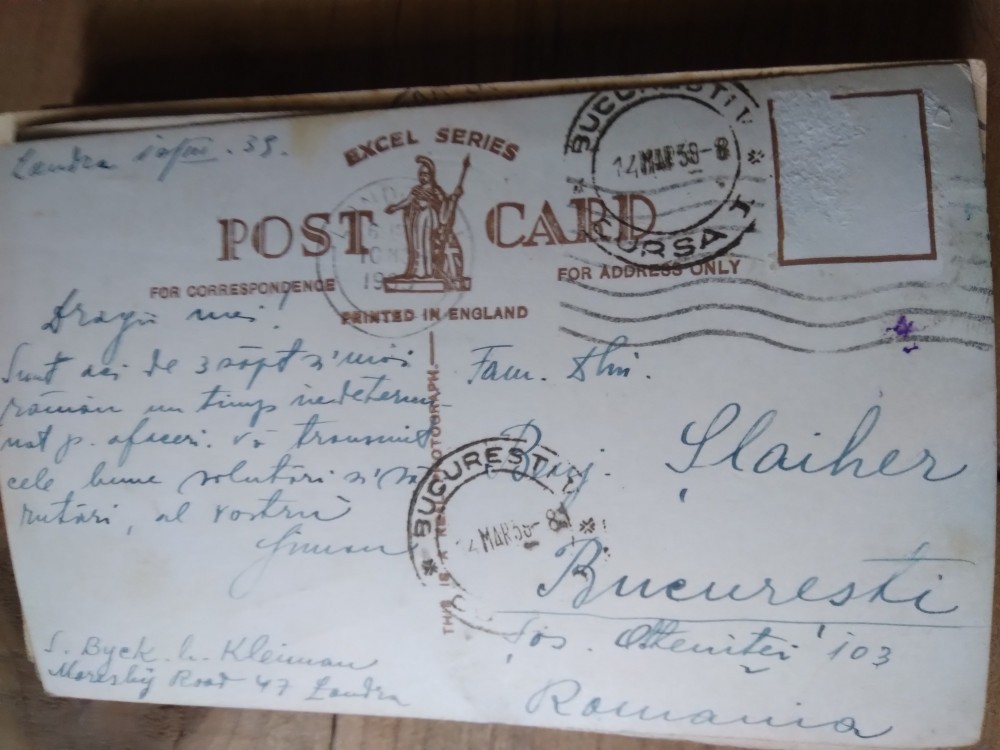 Londra 10/III. 39.
EXCEL SERIES
POST CARD
FOR CORRESPONDENCE
FOR ADDRESS ONLY
PRINTED IN ENGLAND
BUCUREȘTI
14 MAR 39-8
CURSA I
10 M
19
Dragii mei!
Sunt aci de 3 săpt și mai
rămân un timp nedetermi
nat p. afaceri. Vă transmit
cele bune salutări și să
rutări, al vostru
Simon
S. Byck. b. Kleiman
Moresby Road 47 Londra
THIS IS A REAL PHOTOGRAPH
BUCUREȘTI
MAR 39-8
Fam. Dlui.
Benj. Șlaiher
București
Șos. Olteniței 103
Romania